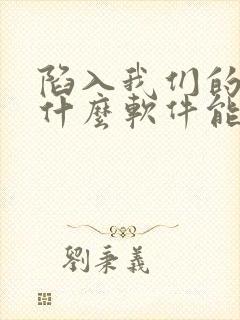 陷入我们的
什麼軟件能
劉秉義